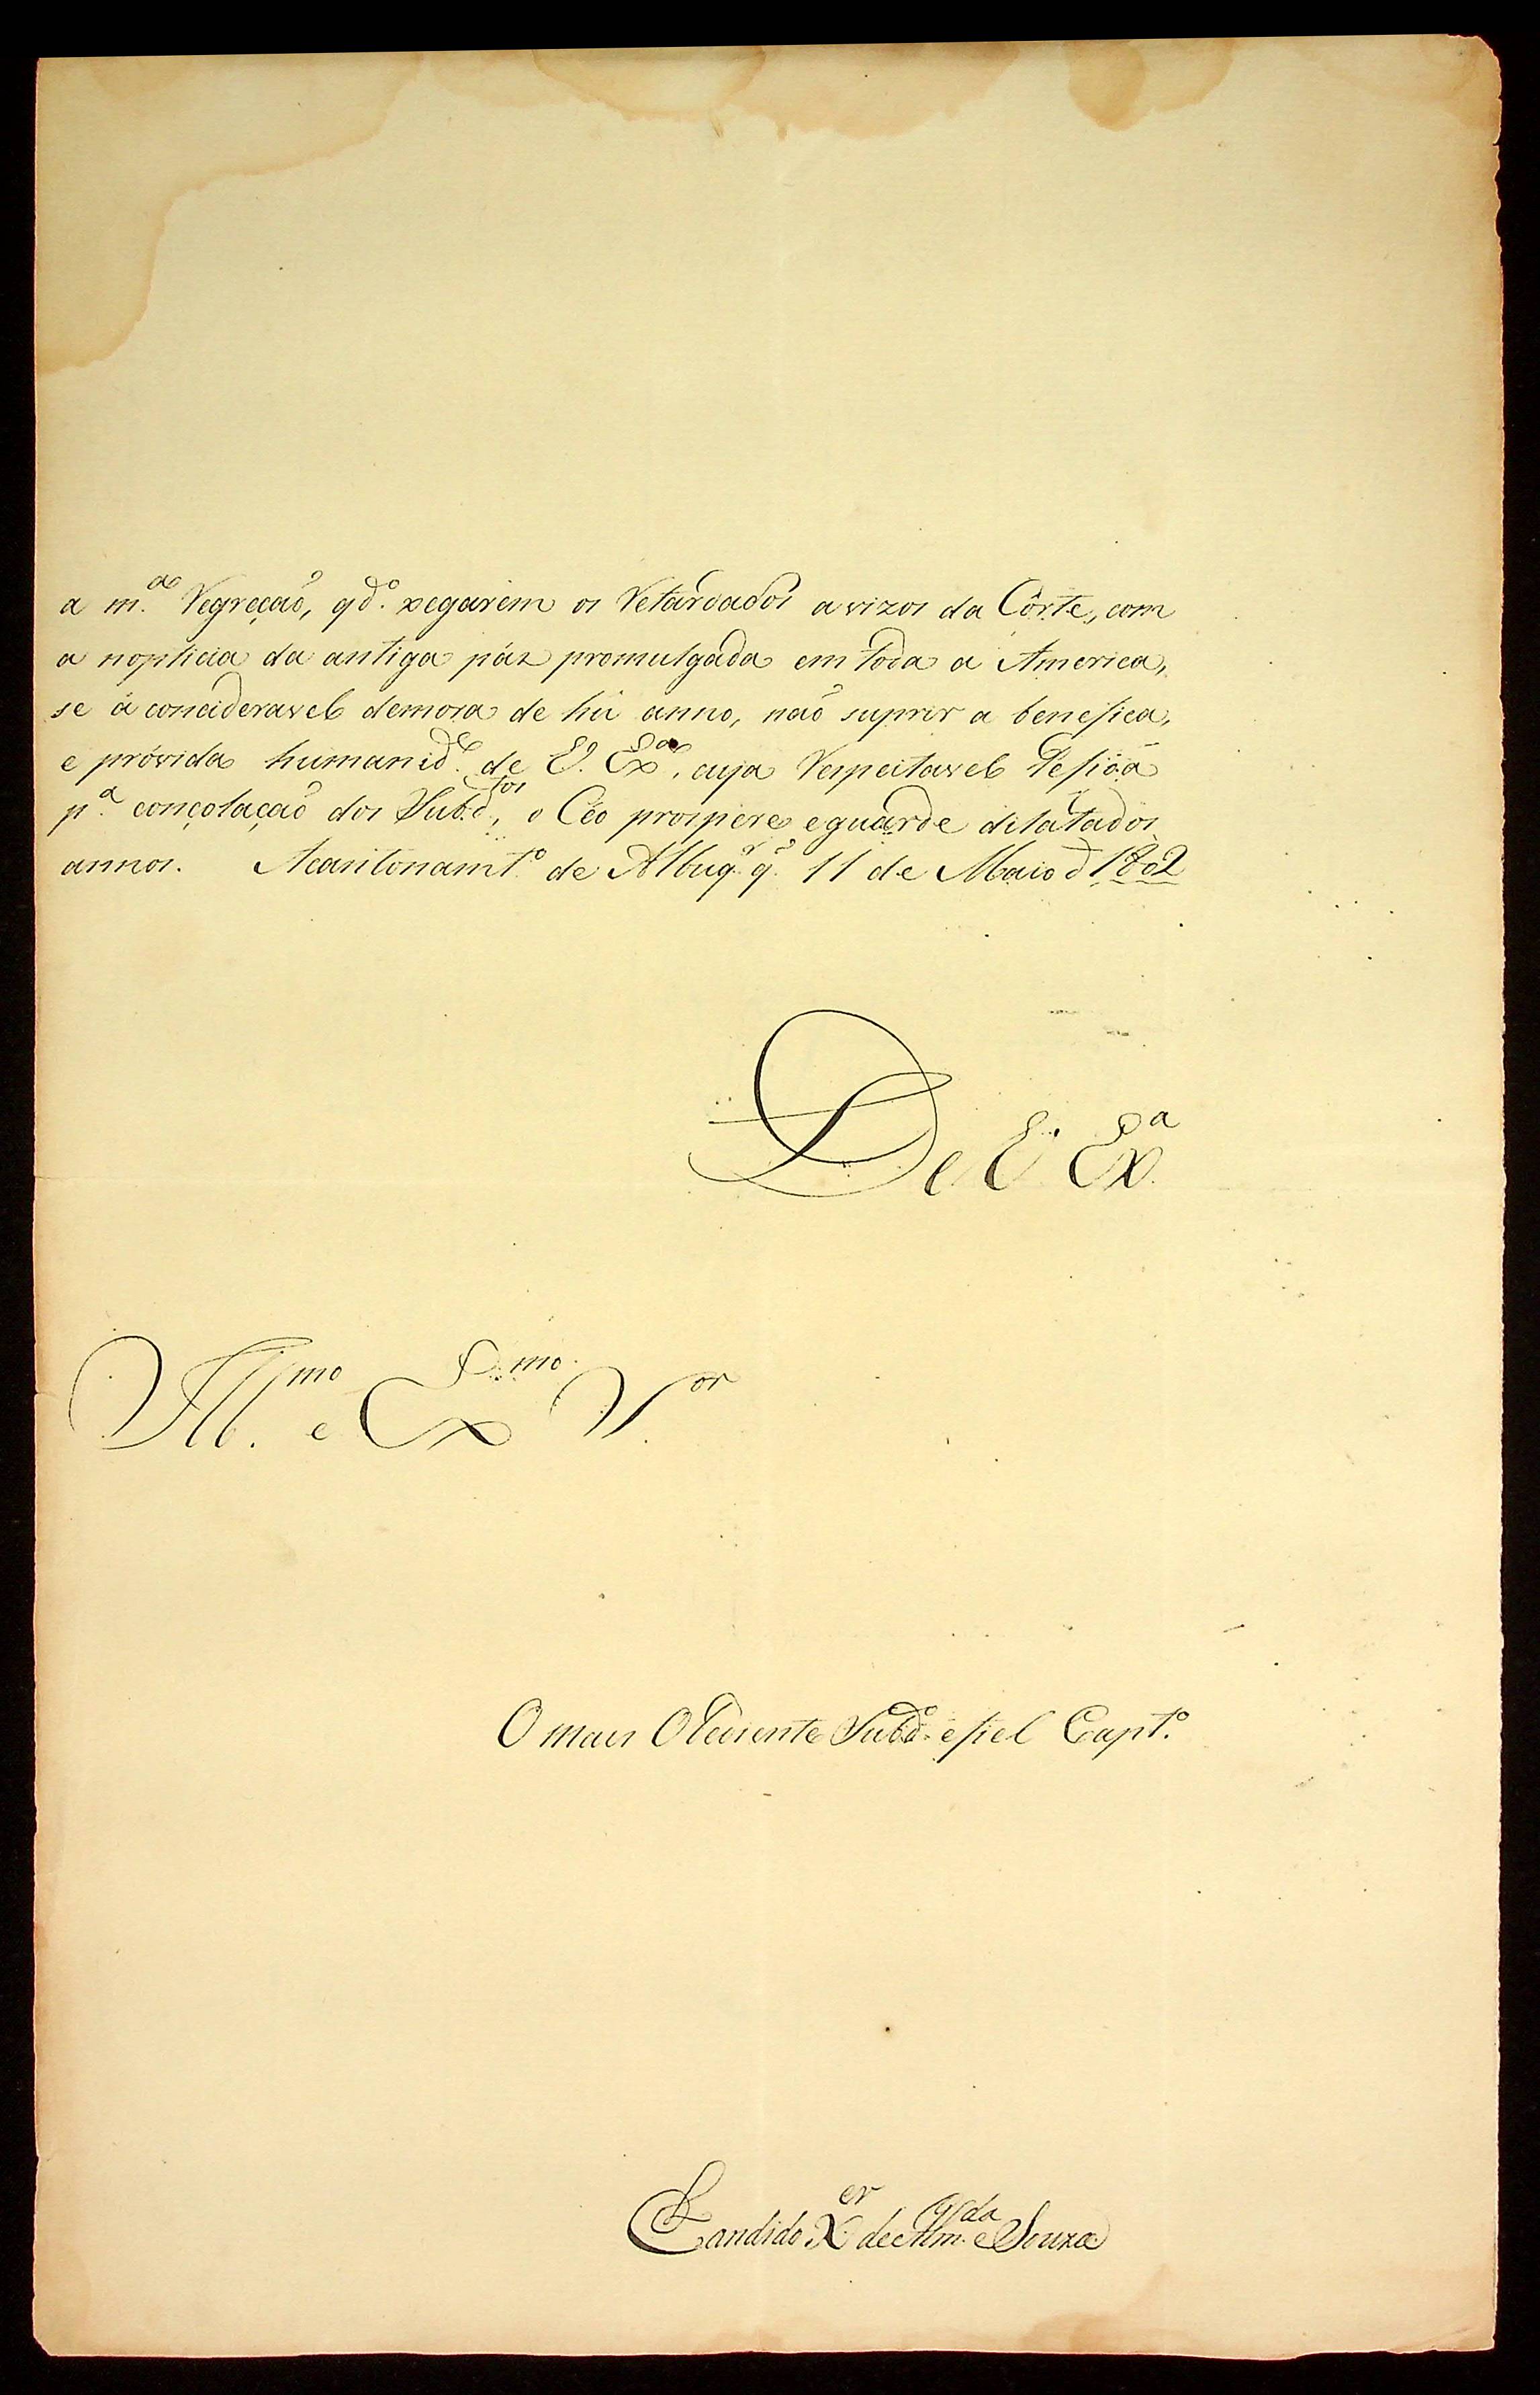 a m.ª Regreçaõ, qd.º xegarem os Retardados avizos da Côrte, com
a nopticia da antiga páz promulgada em toda a America,
se á concideravel demora de hũ anno, naõ suprir a benefica,
e próvida humanid.e de V. Ex.ª, cuja Respeitavel Pesiôa
p.ª conçolaçaõ dos Subd.tos, o Céo prospere e guarde dilatados
annos. Acantonamt.º de Albuq.e q.e 11 de Maio d 1802
De V. Ex.ª
Ill.mo e Ex.mo S.or
O mais Obediente Subd.º e fiel Capt.º
Candido X.er de Alm.da e Souza